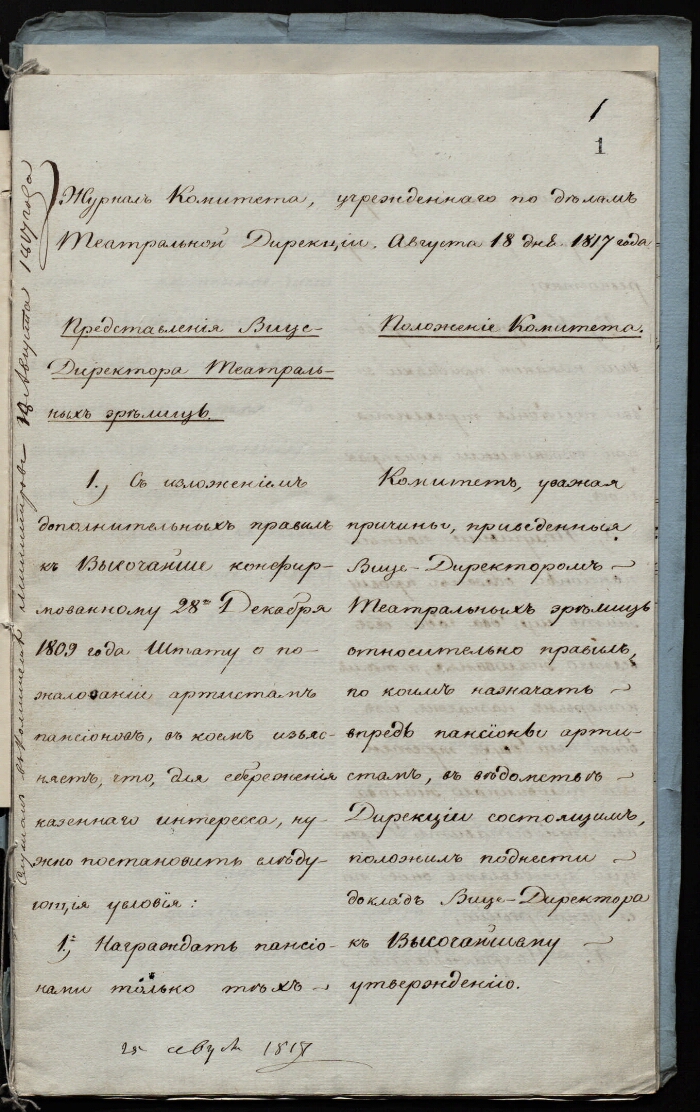 1
1
Журналъ Комитета, учрежденнаго по дѣламъ
Театральной Дирекціи. Августа 18 дня 1817 года
Представленія Вице-
Директора Театраль-
ныхъ зрѣлищъ.
1., Съ изложеніемъ
дополнительныхъ правилъ
къ Высочайше конфир-
мованному 28го Декабря
1809 года Штату о по-
жалованіи артистамъ
пансіоновъ, въ коемъ изъяс-
няетъ, что, для сбереженія
казеннаго интереса, ну-
жно постановить слѣду-
ющія условія:
1е, Награждать пансіо-
нами только тѣхъ
Положеніе Комитета.
Комитетъ, уважая
причины, приведенныя
Вице-Директоромъ
Театральныхъ зрѣлищъ
относительно правилъ,
по коимъ назначать
впредь пансіоны арти-
стамъ, въ вѣдомствѣ
Дирекціи состоящимъ,
положилъ поднести
докладъ Вице-Директора
къ Высочайшему
утвержденію.
Слушали въ Комитетѣ Министровъ Августа 1817 года
25 августа 1817